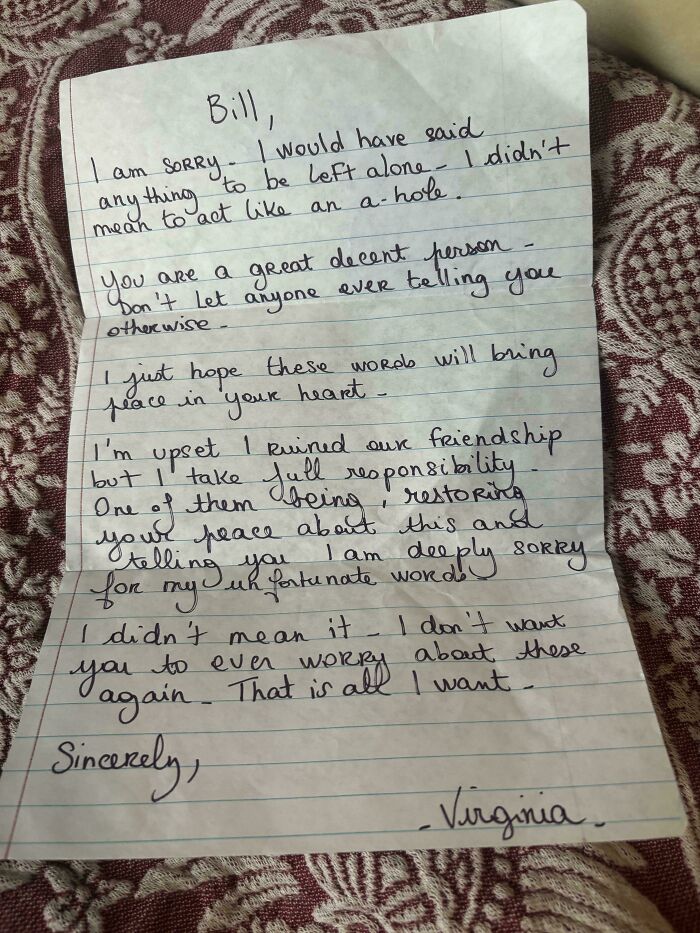 Bill,
I am sorry - I would have said
anything to be left alone - I didn't
mean to act like an a-hole.
You are a great decent person -
Don't let anyone ever telling you
otherwise -
I just hope these words will bring
peace in your heart -
I'm upset I ruined our friendship
but I take full responsibility -
One of them being, restoring
your peace about this and
telling you I am deeply sorry
for my unfortunate words
I didn't mean it - I don't want
you to ever worry about these
again - That is all I want -
Sincerely,
- Virginia -